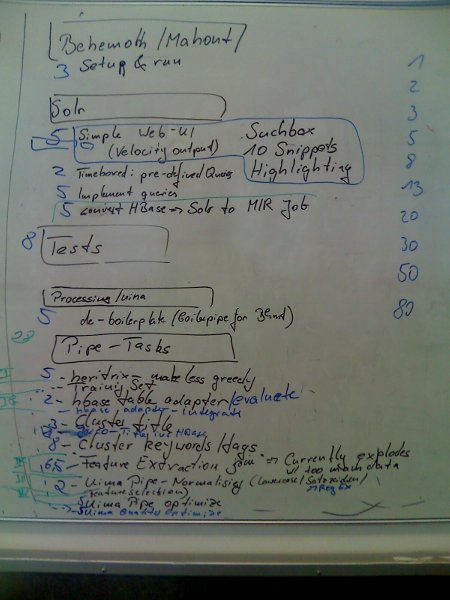 Behemoth/Mahout/
3 Setup & run
1
2
3
5
8
13
20
30
50
80
Solr
5 Simple Web-UI
(Velocity output)
Suchbox
10 Snippets
Highlighting
2 Timeboxed: pre-defined Queries
5 Implement queries
5 convert HBase => Solr to M/R Job
8 Tests
Processing/uima
5 de-boilerplate (boilerpipe for Behmt)
Pipe-Tasks
5 - heritrix - make less greedy
- Training Set
2 - hbase table adapter/evaluate
- hbase adapter - integrate
3 - Cluster title
- Title int HBase
8 - Cluster keywords/tags
- Feature Extraction => Currently explodes
w/ too much data
2 - Uima Pipe - Normalising (Lowercase/Satzzeichen/
Feature Selection) Regex
5 Uima Pipe optimize
5 Uima optimize